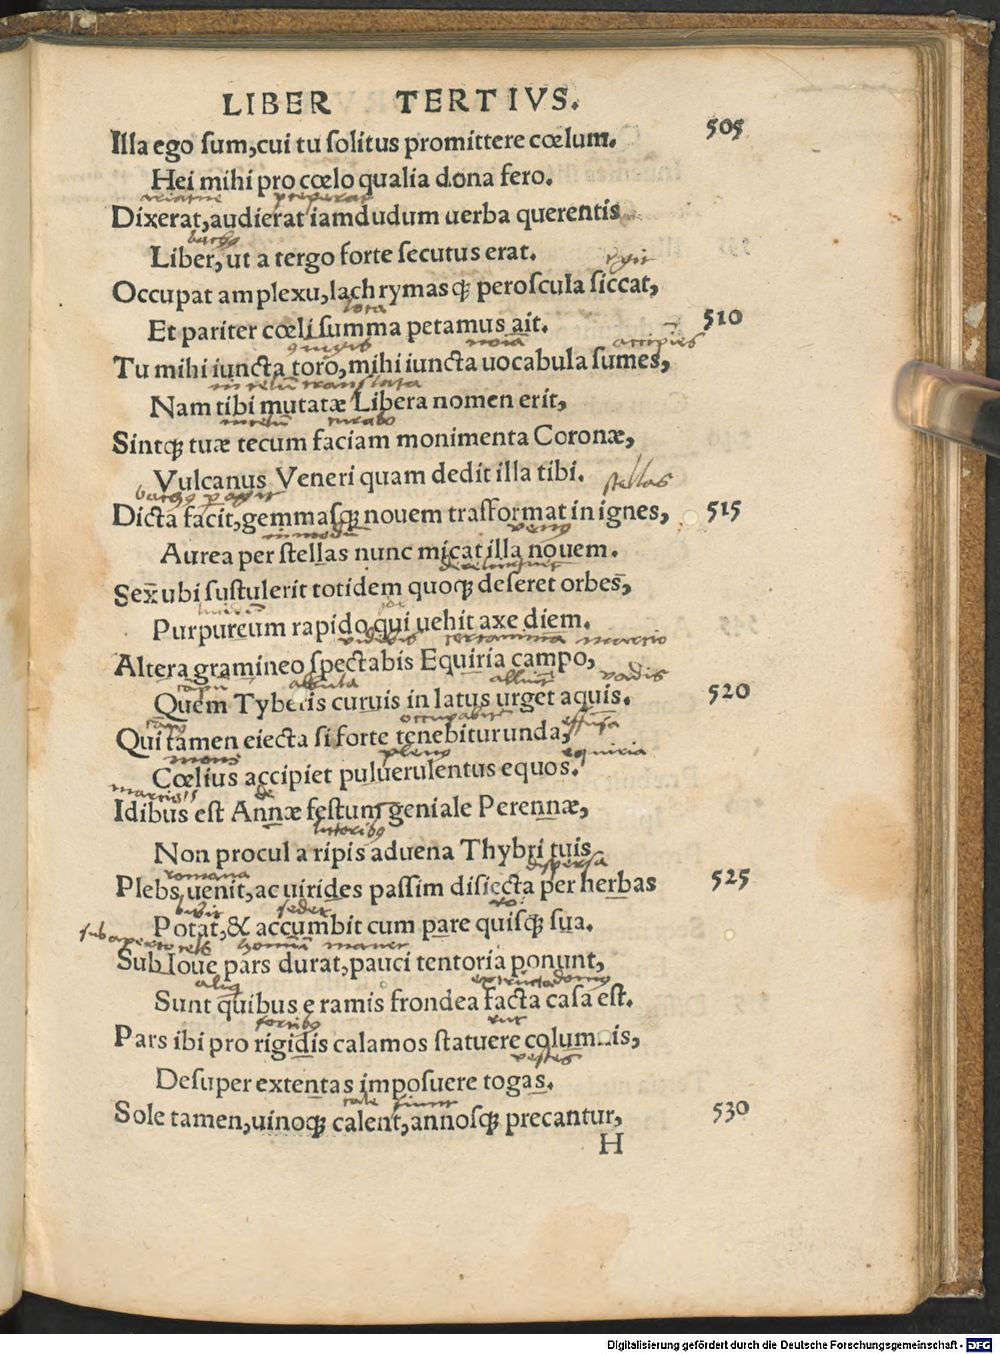 LIBER TERTIVS.
Illa ego sum,cui tu solitus promittere cœlum. 505
Hei mihi pro cœlo qualia dona fero.
Dixerat,audierat iamdudum uerba querentis
bacchus
Liber,ut a tergo forte secutus erat.
Occupat amplexu,lachrymasq; per oscula siccat,
loca
Et pariter cœli summa petamus ait. 510
accipies
Tu mihi iuncta toro,mihi iuncta uocabula sumes,
in celum translata
Nam tibi mutatæ Libera nomen erit,
Sintq; tuæ tecum faciam monimenta Coronæ,
Vulcanus Veneri quam dedit illa tibi.
stellas
Dicta facit,gemmasq; nouem trāsformat in ignes, 515
Aurea per stellas nunc micat illa nouem.
Sex ubi sustulerit totidem quoq; deseret orbes,
Purpureum rapido qui uehit axe diem.
videbis certamina marcio
Altera gramineo spectabis Equiria campo,
vadis
Quem Tyberis curuis in latus urget aquis. 520
effusa
Qui tamen eiecta si forte tenebitur unda,
mons pleno equiria
Cœlius accipiet puluerulentus equos.
marcii de
Idibus est Annæ festum geniale Perennæ,
Non procul a ripis aduena Thybri tuis
romana dispersa
Plebs uenit,ac uirides passim disiecta per herbas 525
bibit sedet
Potat,& accumbit cum pare quisq; sua.
sub aperto celo manet
Sub Ioue pars durat,pauci tentoria ponunt,
Sunt quibus e ramis frondea facta casa est.
Pars ibi pro rigidis calamos statuere columnis,
vestes
Desuper extentas imposuere togas.
Sole tamen,uinoq; calent,annosq; precantur, 530
H
Digitalisierung gefördert durch die Deutsche Forschungsgemeinschaft - DFG